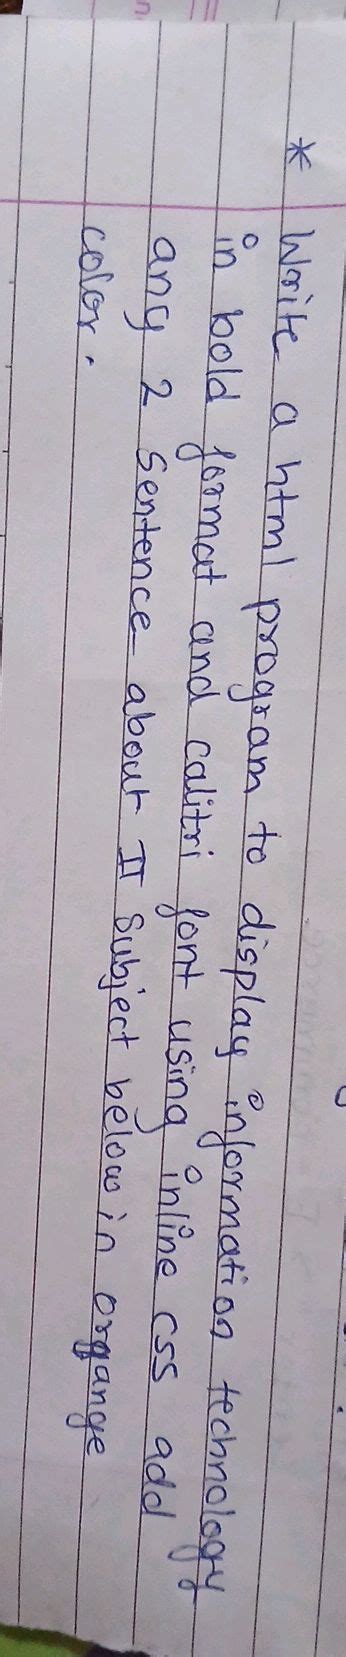 * Write a html program to display information technology
in bold format and calitri font using inline css add
any 2 sentence about IT subject below in organge
color.